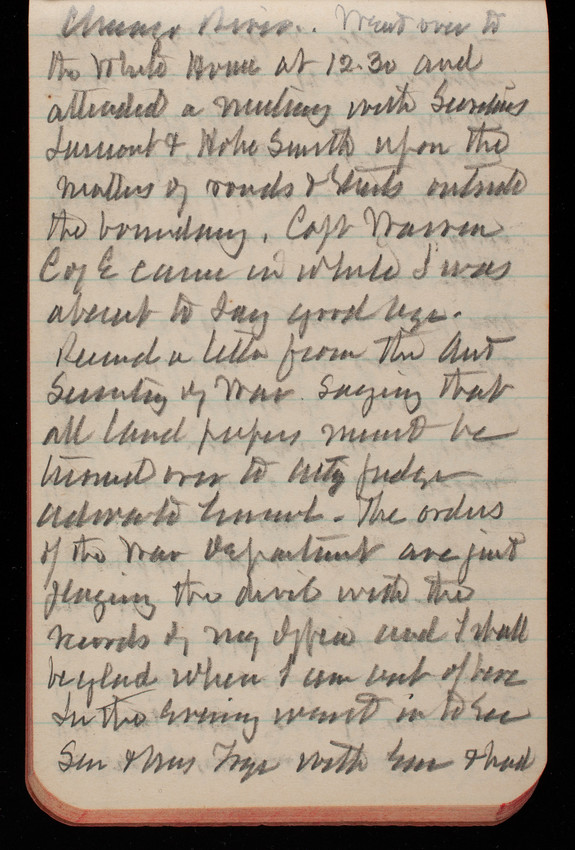 Chicago River. Went over to
the White House at 12.30 and
attended a meeting with Secretaries
Lamont & Hoke Smith upon the
matters of roads & streets outside
the boundary. Capt Warren
C of E came in while I was
about to say good bye.
Received a letter from the Asst
Secretary of War saying that
all land papers must be
turned over to Actg Judge
Advocate General. The orders
of the War Department are just
playing the devil with the
records of my office and I shall
be glad when I am out of here
In the evening went in to see
Sen & Mrs Frye with & had